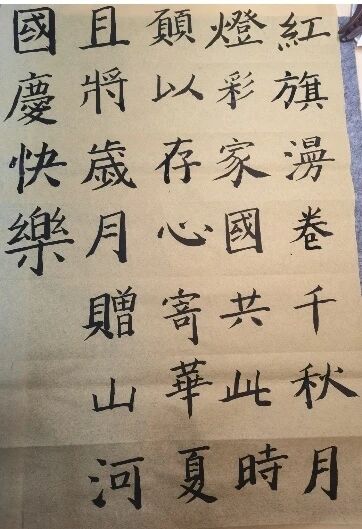 紅旗漫卷千秋月
燈彩家國共此時
願以存心寄華夏
且將歲月贈山河
國慶快樂